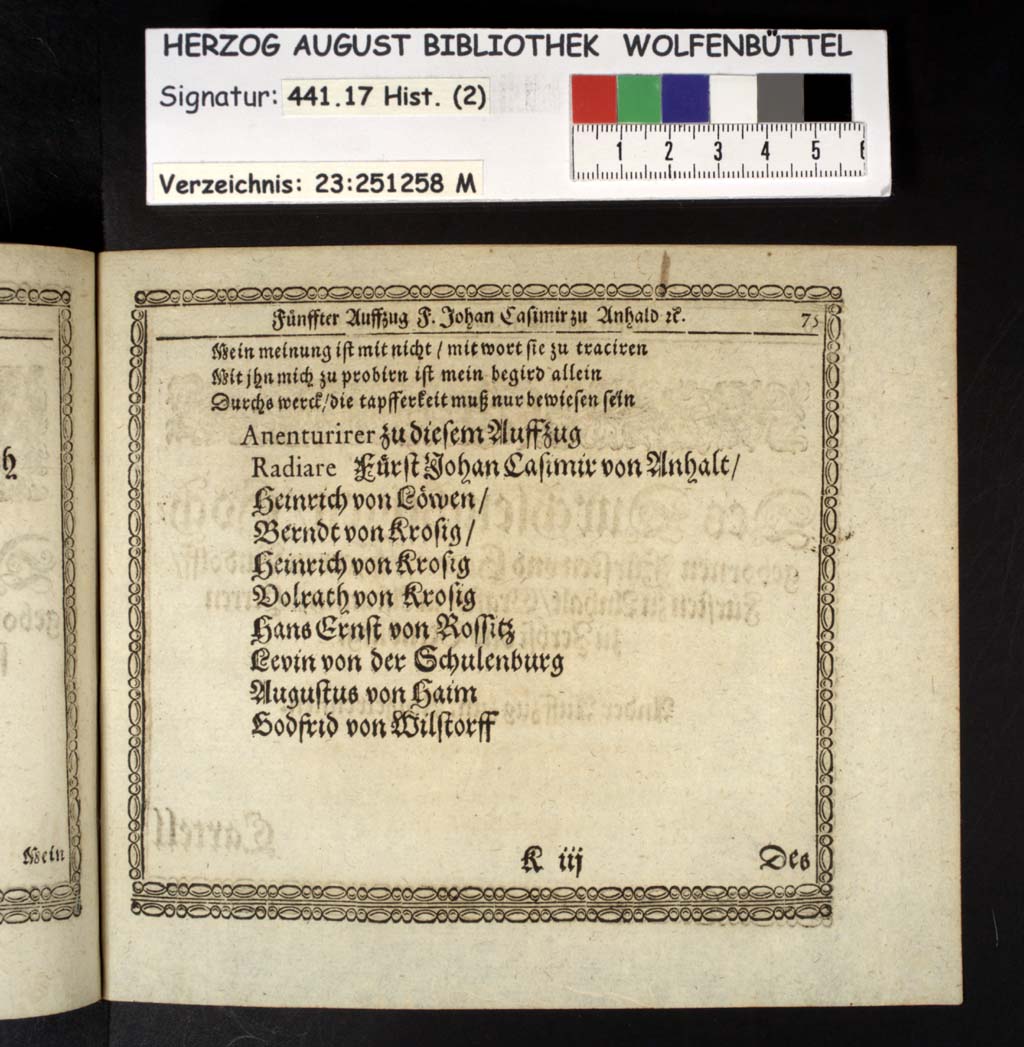 HERZOG AUGUST BIBLIOTHEK WOLFENBÜTTEL
Signatur: 441.17 Hist. (2)
Verzeichnis: 23:251258 M
1 2 3 4 5 6
Fünffter Auffzug F. Johan Casimir zu Anhald ꝛc. 75
Mein meinung ist mit nicht / mit wort sie zu traciren
Mit jhn mich zu probirn ist mein begird allein
Durchs werck / die tapfferkeit muß nur bewiesen sein
Anenturirer zu diesem Auffzug
Radiare Fürst Johan Casimir von Anhalt /
Heinrich von Löwen /
Berndt von Krosig /
Heinrich von Krosig
Volrath von Krosig
Hans Ernst von Rossitz
Levin von der Schulenburg
Augustus von Haim
Godfrid von Wilstorff
K iij Des
h
Mein